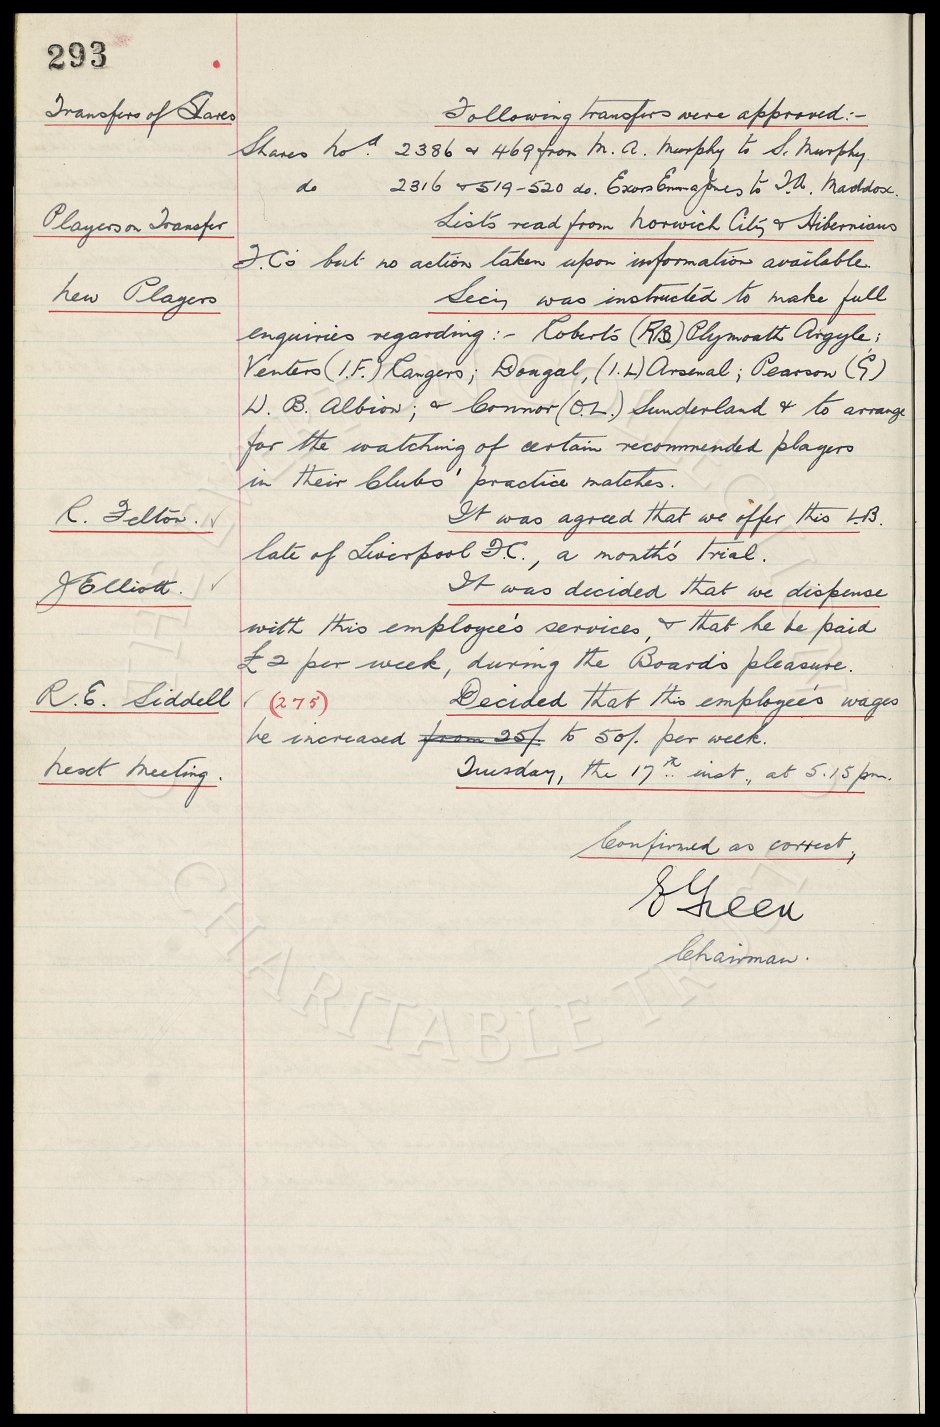 293
Transfers of Shares Following transfers were approved:-
Shares Nos. 2386 & 469 from M. A. Murphy to S. Murphy.
do 2316 & 519-520 do. Exors Emma Jones to T.A. Maddox.
Players on Transfer Lists read from Norwich City & Hibernians
F.C's but no action taken upon information available.
New Players Secy was instructed to make full
enquiries regarding :- Roberts (R.B.) Plymouth Argyle;
Venters (I.F.) Rangers; Dougal, (I.L) Arsenal; Pearson (G)
W. B. Albion; & Connor (O.L.) Sunderland & to arrange
for the watching of certain recommended players
in their Clubs' practice matches.
R. Felton. ✓ It was agreed that we offer this L.B.
late of Liverpool F.C., a month's trial.
J Elliott. ✓ It was decided that we dispense
with this employee's services, & that he be paid
£2 per week, during the Board's pleasure.
R. E. Liddell ✓ (275) Decided that this employee's wages
be increased from 25/. to 50/. per week.
Next Meeting. Tuesday, the 17th inst., at 5.15 pm.
Confirmed as correct,
E Green
Chairman.
CHARITABLE TRUST